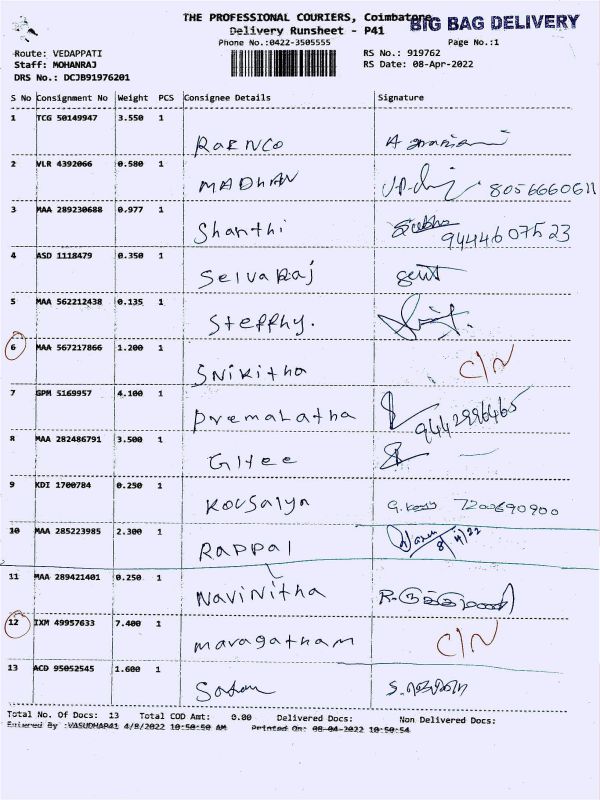 THE PROFESSIONAL COURIERS, Coimbatore
BIG BAG DELIVERY
Delivery Runsheet - P41
Phone No.:0422-3505555
Page No.:1
Route: VEDAPPATI
RS No.: 919762
Staff: MOHANRAJ
RS Date: 08-Apr-2022
DRS No.: DCJB91976201
S No Consignment No Weight PCS Consignee Details Signature
1 TCG 50149947 3.550 1
RaENCO
2 VLR 4392066 0.580 1
MADHAN 8056660611
3 MAA 289230688 0.977 1
Shanthi 9444607523
4 ASD 1118479 0.350 1
Selvaraj
5 MAA 562212438 0.135 1
Stepphy.
6 MAA 567217866 1.200 1
Snikitha C/N
7 GPM 5169957 4.100 1
Premalatha 9442996465
8 MAA 282486791 3.500 1
9 KDI 1700784 0.250 1
Kousalya 7200690900
10 MAA 285223985 2.300 1
Rappal 8/4/22
11 MAA 289421401 0.250 1
Navinitha
12 IXM 49957633 7.400 1
maragatham C/N
13 ACD 95052545 1.600 1
Total No. Of Docs: 13 Total COD Amt: 0.00 Delivered Docs: Non Delivered Docs:
Entered By :VASUDHAP41 4/8/2022 10:50:50 AM Printed On: 08-04-2022 10:50:54